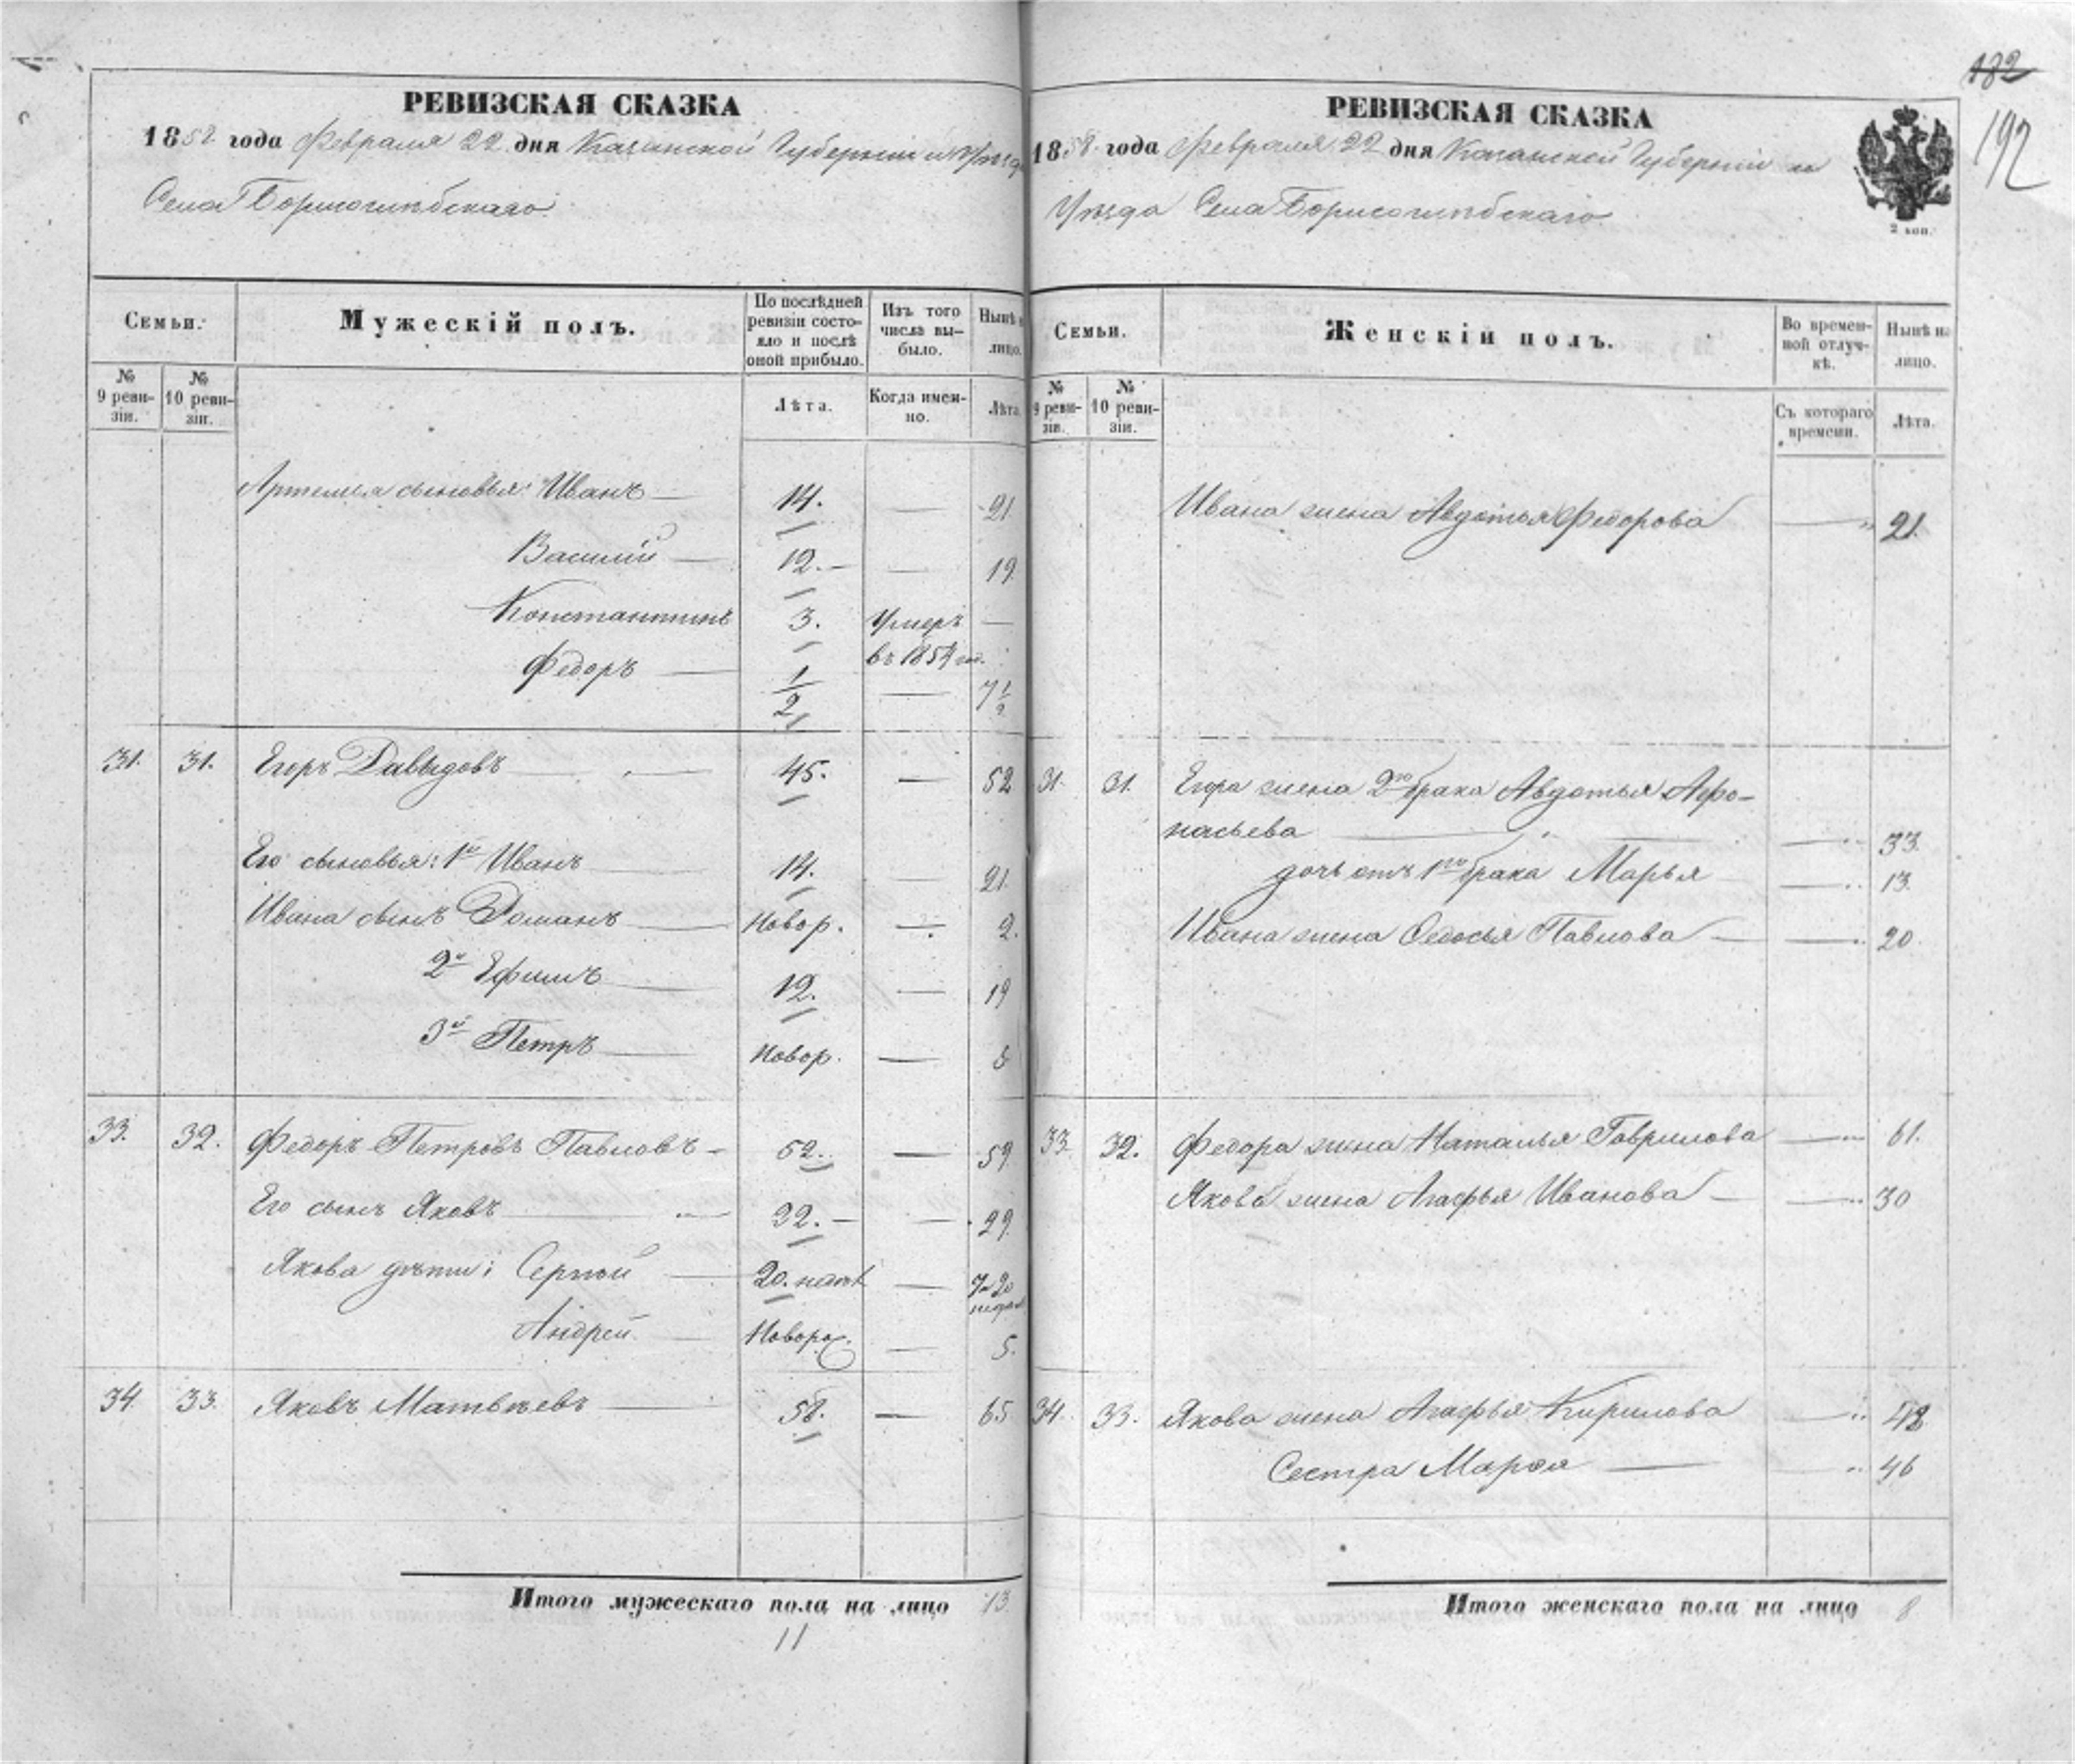 182
192
РЕВИЗСКАЯ СКАЗКА
1858 года Февраля 22 дня Казанской Губерніи и Уѣзда
Села Борисоглѣбскаго
Семьи.
Мужескій полъ.
По послѣдней ревизіи состояло и послѣ оной прибыло.
Изъ того числа выбыло.
Нынѣ на лицо.
№ 9 ревизіи.
№ 10 ревизіи.
Лѣта.
Когда именно.
Лѣта.
Артемья сыновья: Иванъ — 14. — 21.
Василій — 12. — 19.
Константинъ 3. Умеръ —
въ 1854 год.
Федоръ — 1/2 — 7 1/2
31. 31. Егоръ Давыдовъ — 45. — 52
Его сыновья: 1й Иванъ — 14. — 21.
Ивана сынъ Романъ — Новор. — 2.
2й Ефимъ — 12. — 19
3й Петръ — Новор. —
33. 32. Федоръ Петровъ Павловъ — 52. — 59.
Его сынъ Яковъ — 22. — 29.
Якова дѣти: Сергѣй — 20. — 7 20
Андрей — Новорож. — 5.
34. 33. Яковъ Матвѣевъ — 58. — 65
Итого мужескаго пола на лицо 13.
11
РЕВИЗСКАЯ СКАЗКА
1858 года Февраля 22 дня Казанской Губерніи и
Уѣзда Села Борисоглѣбскаго
2 коп.
Семьи.
Женскій полъ.
Во временной отлучкѣ.
Нынѣ на лицо.
№ 9 ревизіи.
№ 10 ревизіи.
Съ котораго времени.
Лѣта.
Ивана жена Авдотья Федорова — 21.
31. 31. Егора жена 2го брака Авдотья Афо-
насьева — 33.
дочь отъ 1го брака Марья — 13.
Ивана жена Федосья Павлова — 20.
33. 32. Федора жена Наталья Гаврилова — 61.
Якова жена Агафья Иванова — 30
34. 33. Якова жена Агафья Кирилова — 48
Сестра Марья — 46
Итого женскаго пола на лицо 8